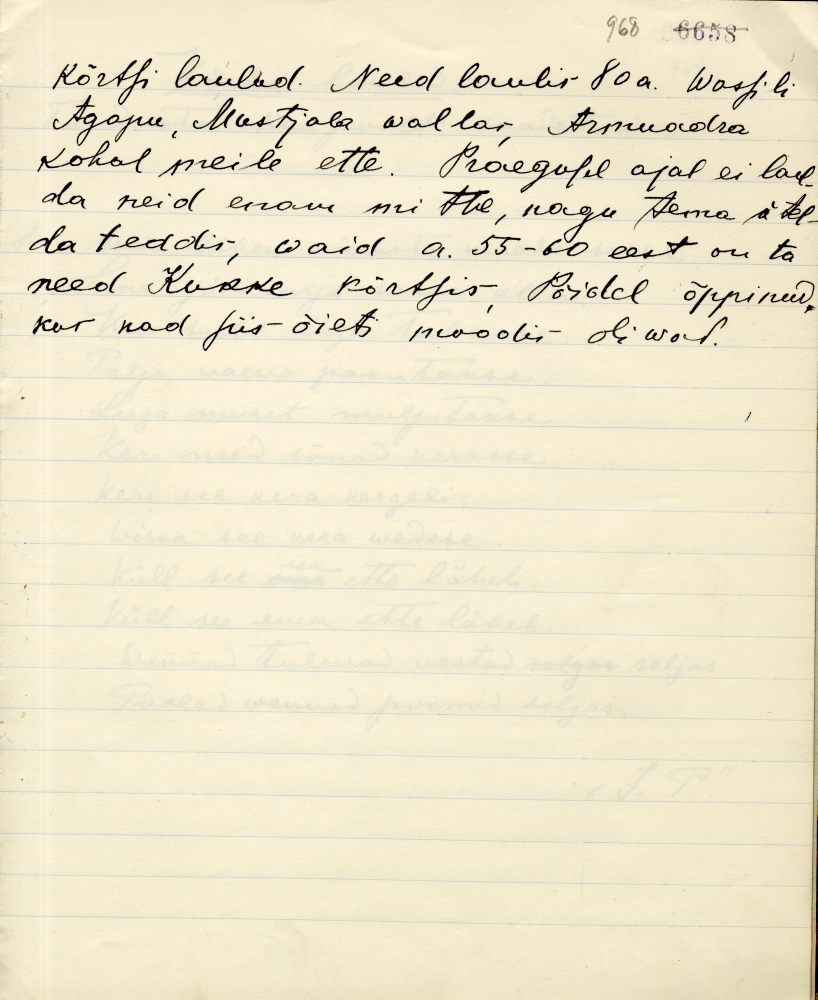 968 6658
Kõrtsi laulud. Need laulis 80 a. Wassili
Agapu, Mustjala wallas, Armuadra
kohal meile ette. Praegusel ajal ei laul-
da neid enam mitte, nagu tema ütel-
da teddis, waid a. 55-60 eest on ta
need Kukke kõrtsis, Pöidel õppinud,
kus nad siis õieti moodis oliwad.